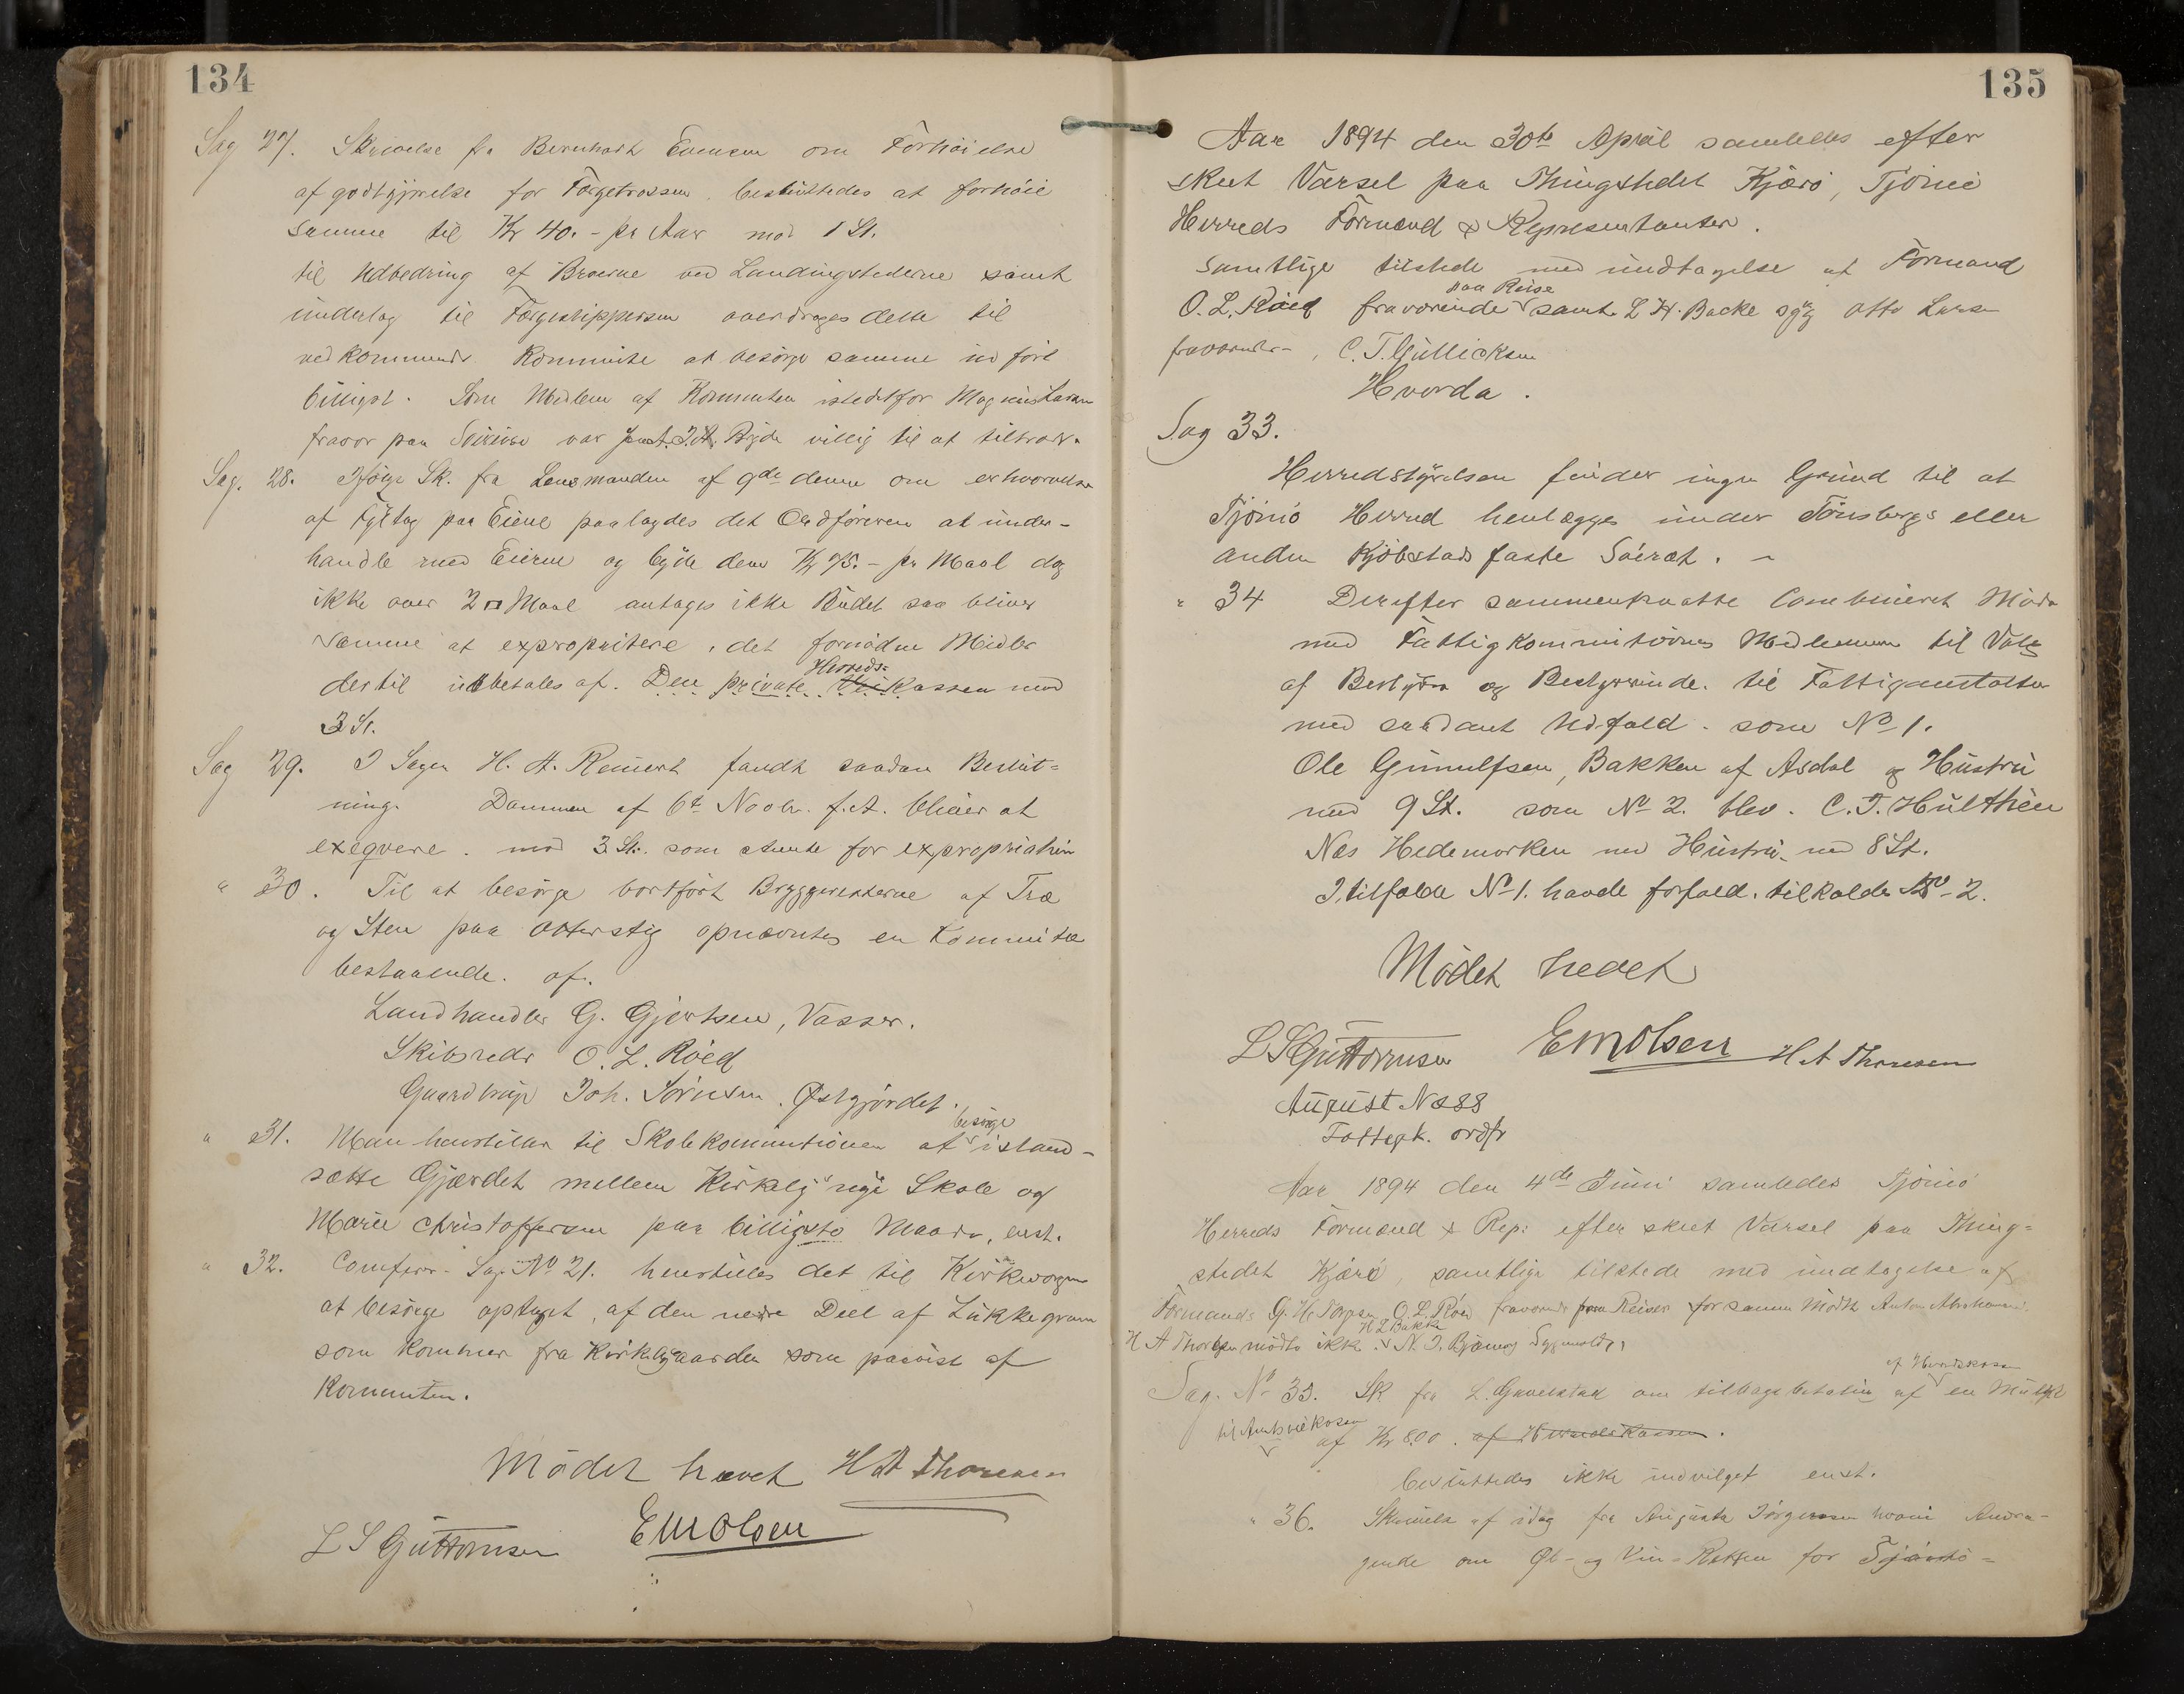 134
Sag 27. Skrivelse fra Bernhart Evensen om Forhöielse
af godtgjörelse for Færgetrossen besluttedes at forhöie
samme til Kr 40.- pr Aar mod 1 St.
til Udbedring af Broerne ved Landingstederne samt
underlag til Færgeskippersen overdroges dette til
vedkommende Kommite at besörge samme udfört
billigst. Som Medlem af Kommiteen istedetfor Magnus Larsen
fravær paa var Bjde villig til at
Sag. 28. Ifölge Sk. fra Lensmanden af 9de dennes om erhvervelse
af Fyltag paa Eiene paalagdes det Ordföreren at under-
handle med Eierne og byde dem Kr 75.- pr Maal dog
ikke over 2 Maal antages ikke Budet saa bliver
samme at expropritere, det fornödne Midler
Herreds-
dertil udbetales af. Den private Vei Kassen mod
3 St.
Sag 29. I Sagen H. A. Reinert fandt saadan Beslut-
ning. Dommen af 6te Novbr. f.A. bliver at
exeqvere. mod 3 St. som stemte for expropriation
" 30. Til at besörge bortfört Bryggeresterne af Træ
og Sten paa Otterstig opnævntes en Kommitee
bestaaende. af.
Landhandler G. Gjertsen, Vasser.
Skibsreder O. L. Röed
Gaardbrug. Joh. Sörensen. Østgjördet.
besörge
" 31. Man henstiller til Skolekommitionen at istand-
sætte Gjærdet mellem Skole og
Marie Christoffersen paa billigste Maade, enst.
" 32. Conferer Sag No 21. henstilles det til Kirkeværgen
at besörge optaget, af den nedre Deel af Lukkegrøven
som kommer fra Kirkegaarden som paavist af
Kommiten.
Mödet hævet H A Thoresen
L S Guttormsen E M Olsen
135
Aar 1894 den 30te April samledes efter
skeet Varsel paa Thingstedet Kjærö, Tjömö
Herreds Formænd & Repræsentanter.
Samtlige tilstede med undtagelse af Formand
paa Reise
O. L. Röed fraværende samt L H. Backe syg Otto Larsen
fraværende, C. T. Gullicksen
Hvorda.
Sag 33.
Herredstyrelsen finder ingen Grund til at
Tjömö Herred henlægges under Tönsbergs eller
anden Kjöbstads faste Söeret. -
" 34 Derefter sammenkaldte Combineret Möde
med Fattigkommitionens Medlemmer til Valg
af Bestyrer og Bestyrerinde. til Fattiganstalten
med saadant Udfald. som No 1.
Ole Gunulfsen, Bakken af Asdal og Hustru
med 9 St. som No 2. blev. C. T. Hülthèn
Næs Hedemarken med Hustru. med 8 St.
I tilfælde No 1. havde forfald. tilkaldes No 2.
Mödet hevet
L S Guttormsen E M Olsen H A Thoresen
August Næss
Fattigk. ordfr
Aar 1894 den 4de Juni samledes Tjömö
Herreds Formænd & Rep: efter skeet Varsel paa Thing-
stedet Kjærö, samtlige tilstede med undtagelse af
Formænds G. H. O. L. Röed fraværende paa Reiser for samme mödte Anton Abrahamsen.
H L Bakke
H A Thoresen mödte ikke. N. J. Bjømeg
af Herredskassen
Sag. No 35. Sk. fra L. Gaveistad om tilbagebetaling af en Mulkt
til Amtsveikasen
af Kr 8.00. af Herredskassen.
besluttedes ikke indvilget enst.
" 36. Skrivelse af idag fra Augusta Jörgensen hvori Andra-
gende om Øl- og Vin-Retten for Tjömö-